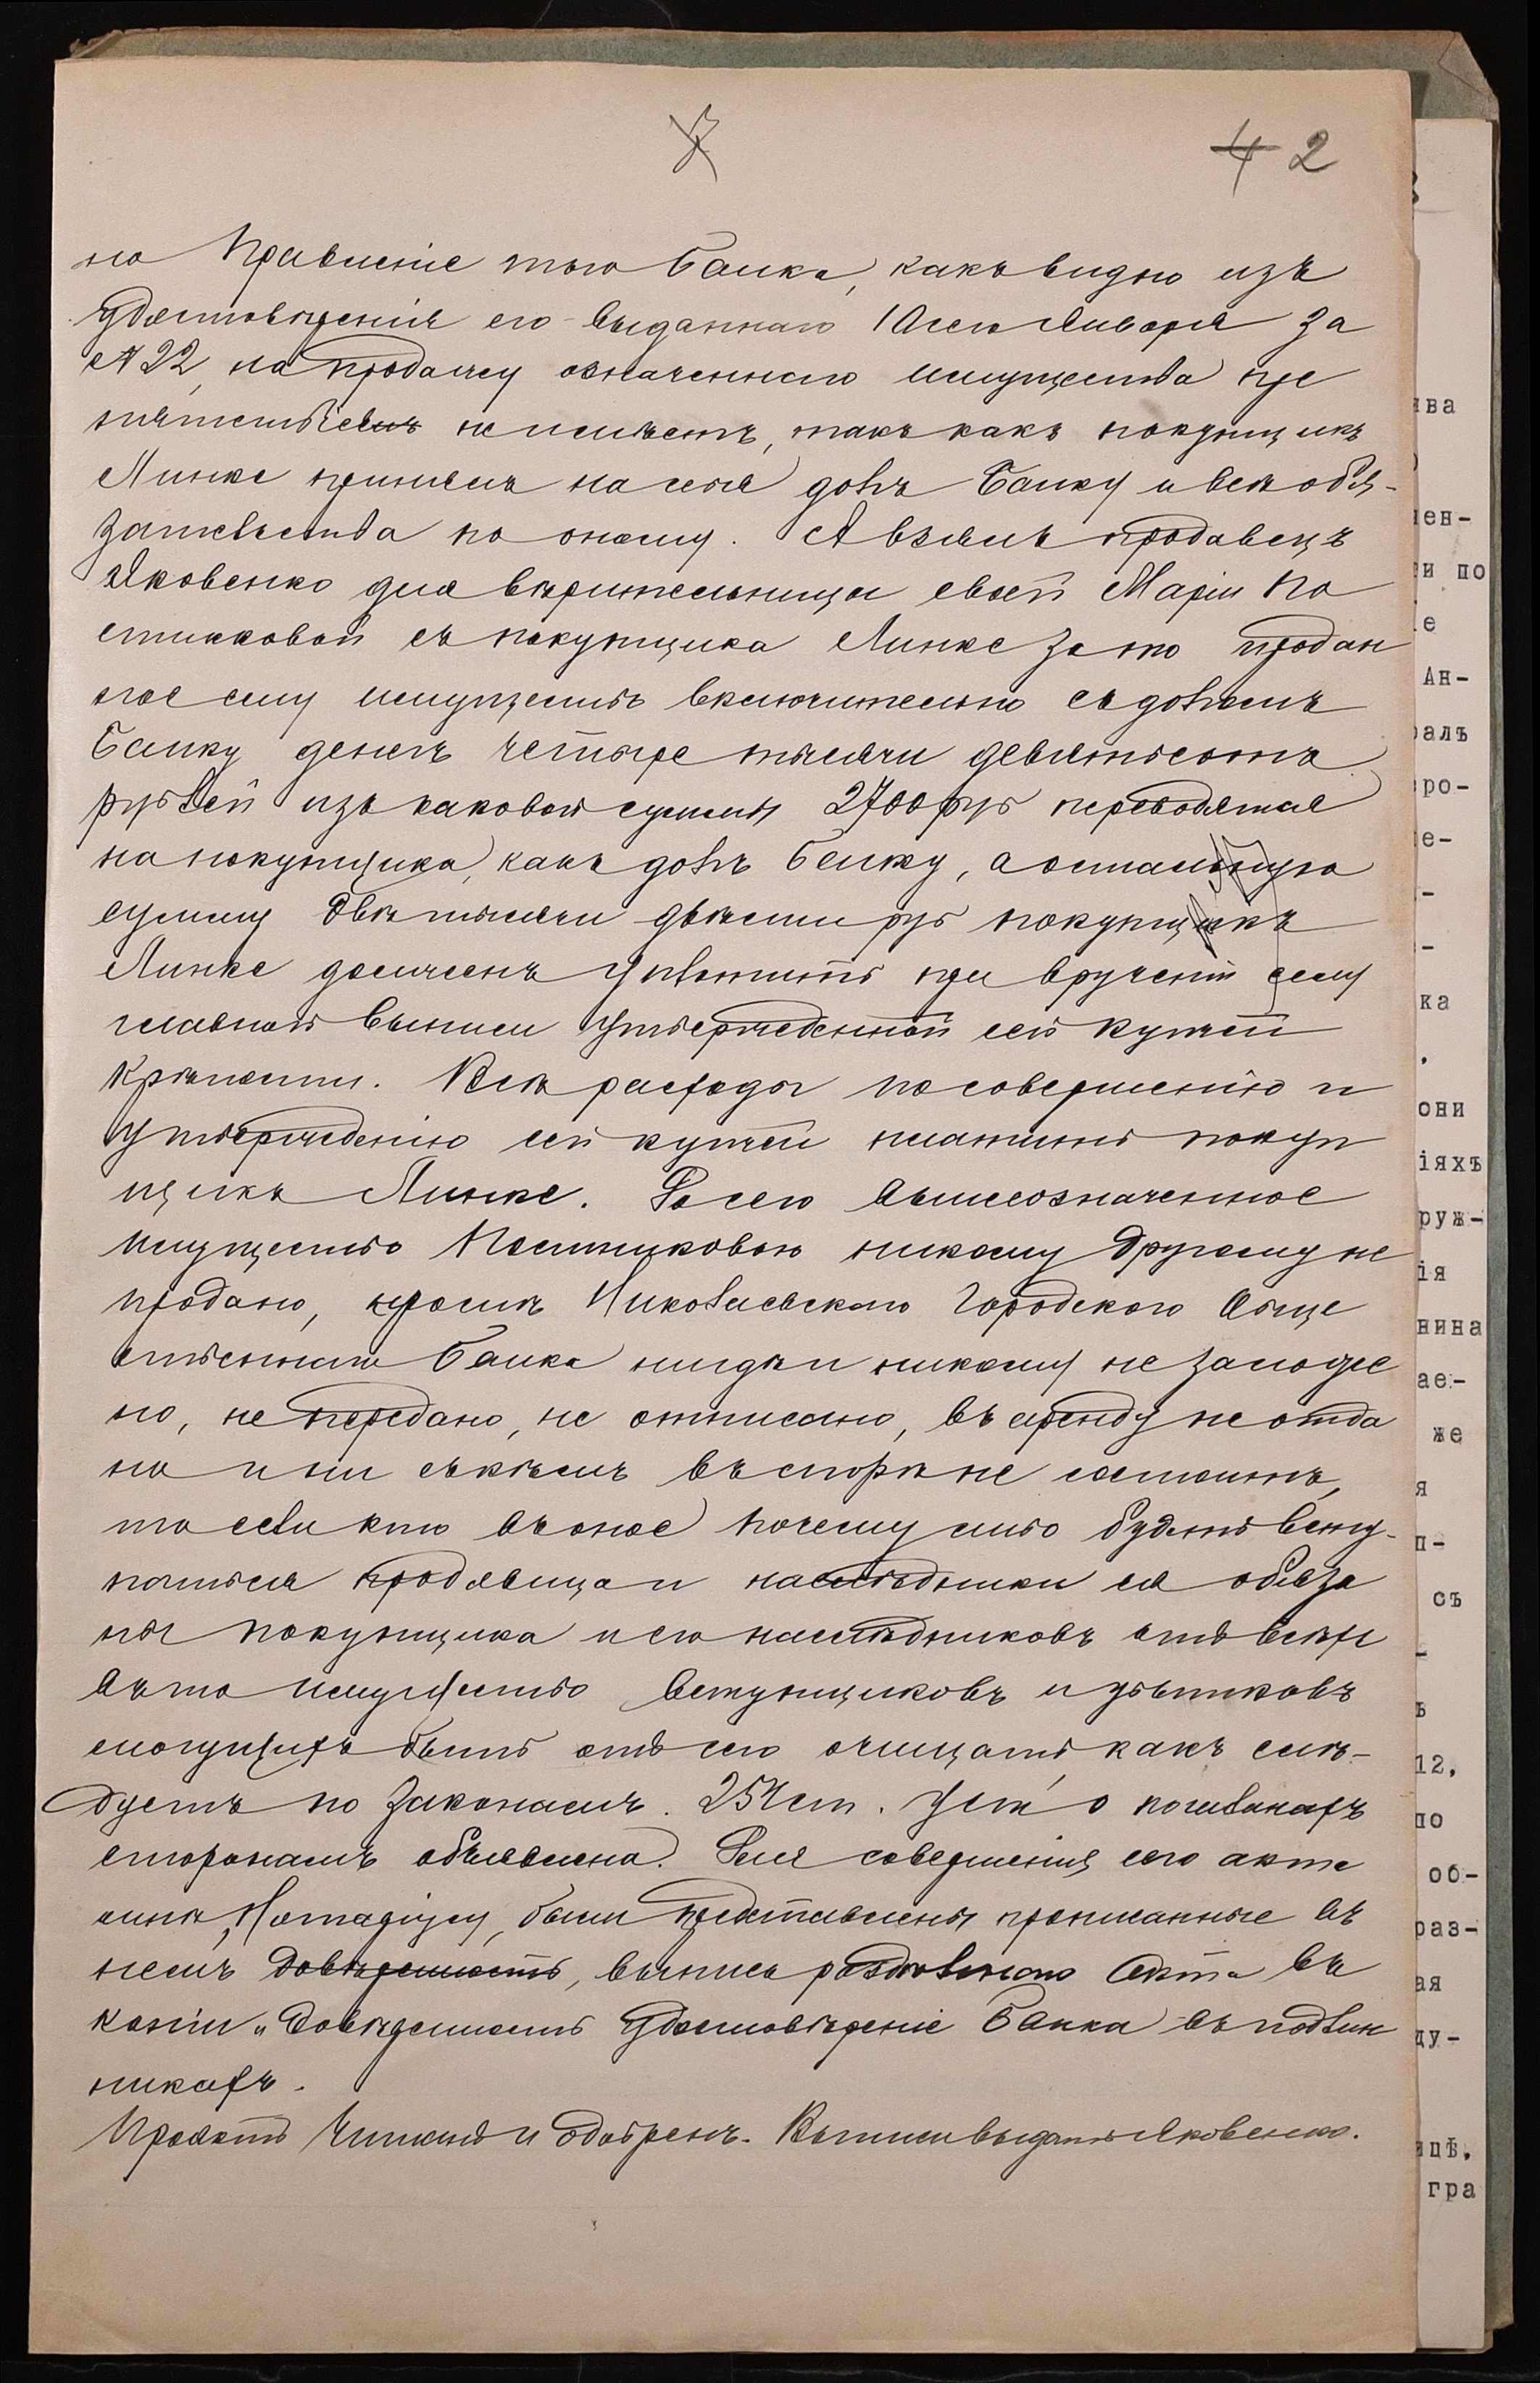 4 2
но Правленіе того Банка, какъ видно изъ
удостовѣренія его выданнаго 10 сего Января за
№ 22, на продажу означеннаго имущества пре
пятствій не имѣетъ, такъ какъ покупщикъ
Линке принялъ на себя долгъ Банку и всѣ обя-
зательства по оному. А взялъ продавецъ
Яковенко для вѣрительницы своей Маріи По
стниковой съ покупщика Линке за то продан
ное ему имущество включительно съ долгомъ
Банку денегъ четыре тысячи девятьсотъ
рублей изъ каковой суммы 2700 руб переводятся
на покупщика, какъ долгъ Банку, а остальную
сумму двѣ тысячи двѣсти руб покупщикъ
Линке долженъ уплатить при врученіи ему
главной выписи утвержденной сей купчей
крѣпости. Всѣ расходы по совершенію и
утвержденію сей купчей платитъ покуп
щикъ Линке. До сего вышеозначенное
имущество Постниковою никому другому не
продано, кромѣ Николаевскаго Городского Обще
ственнаго Банка нигдѣ и никому не заложе
но, не передано, не отписано, въ аренду не отда
но и ни съ кѣмъ въ спорѣ не состоитъ,
то если кто въ оное почему либо будетъ всту-
паться продавица и наслѣдники ея обяза
ны покупщика и его наслѣдниковъ отъ всѣхъ
въ то имущество вступщиковъ и убытковъ
могущихъ быть отъ сего очищать, какъ слѣ-
дуетъ по законамъ. 254 ст. Уст о пошлинахъ
сторонамъ объявлена. Для совершенія сего акта
мнѣ, Нотаріусу, были представлены прописанные въ
немъ довѣренность, выпись раздѣльнаго Акта въ
копіи и довѣренность удостовѣреніе Банка въ подлин
никахъ.
Проектъ читанъ и одобренъ. Выписи выдать Яковенко.